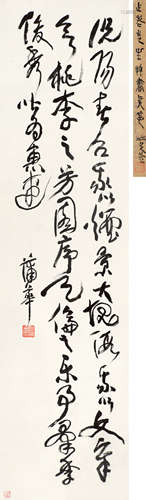 况阳春召我以烟景大块假我以文章
会桃李之芳园序天伦之乐事群季
俊秀皆为惠连
蒲華